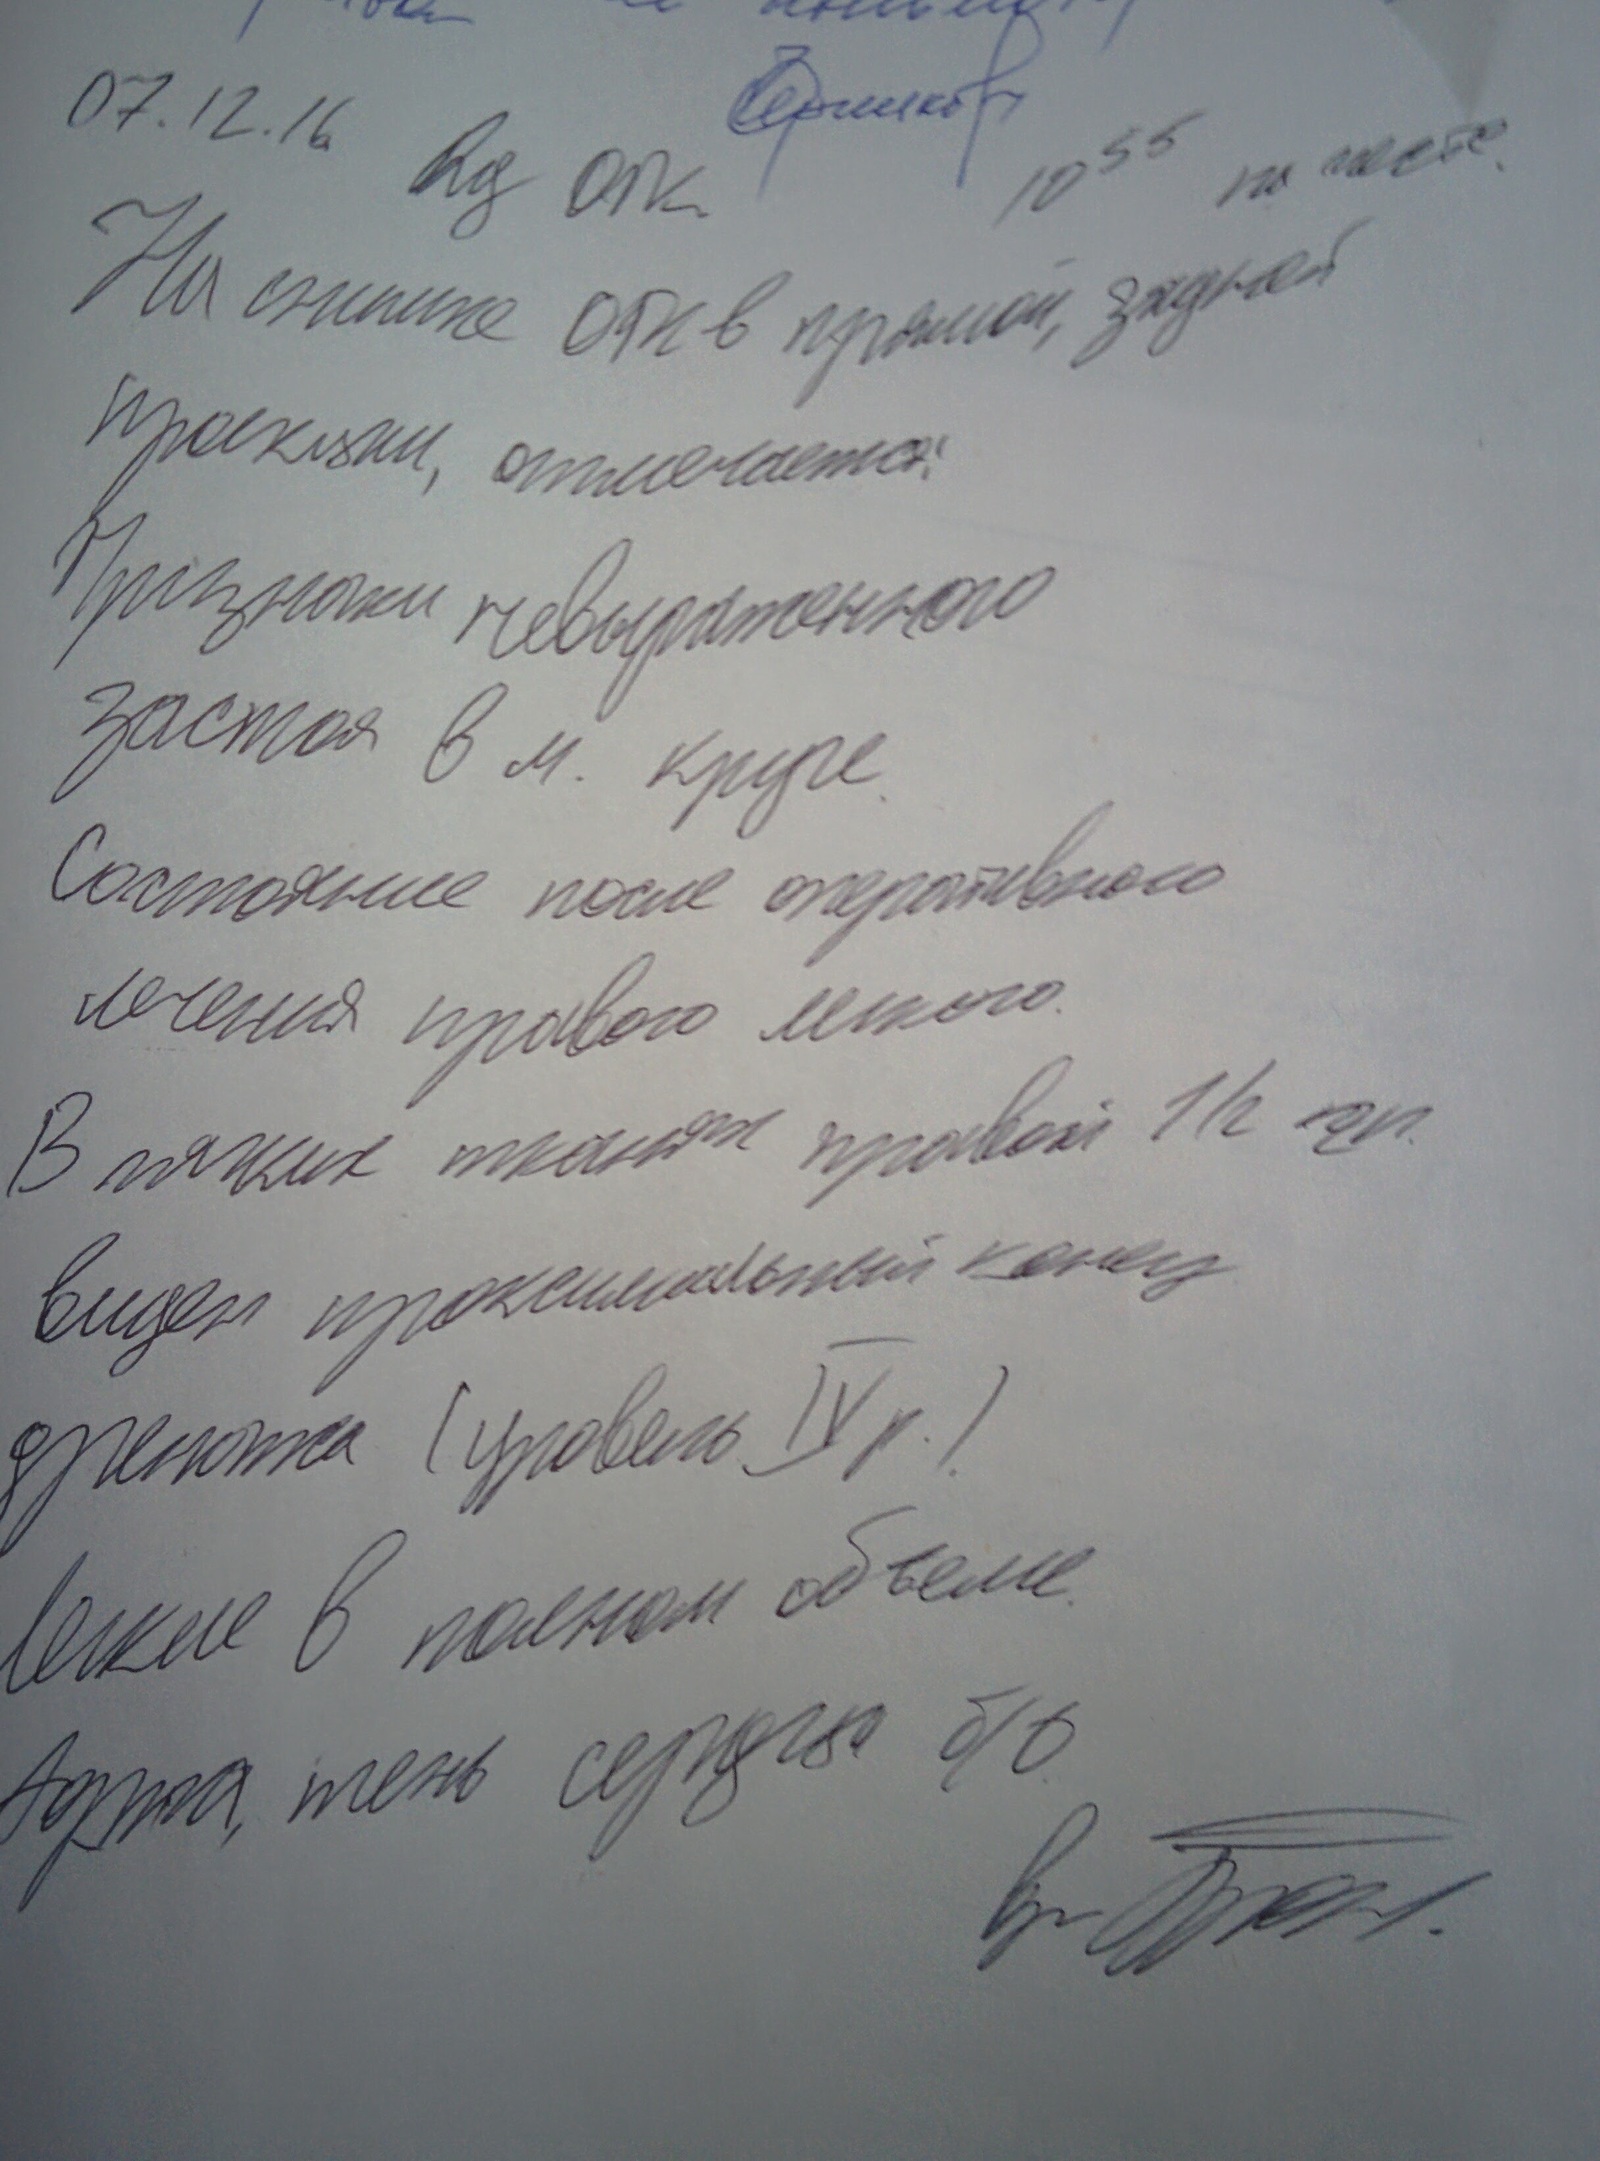 07.12.16
Rg ОГК 10 55 на месте.
На снимке ОГК в прямой, задней
проекции, отмечается:
Признаки невыраженного
застоя в м. круге.
Состояние после оперативного
лечения правого легкого.
В мягких тканях правой 1/2 гр.
виден проксимальный конец
дренажа (уровень IV р.)
Легкие в полном объеме.
Аорта, тень сердца б/о